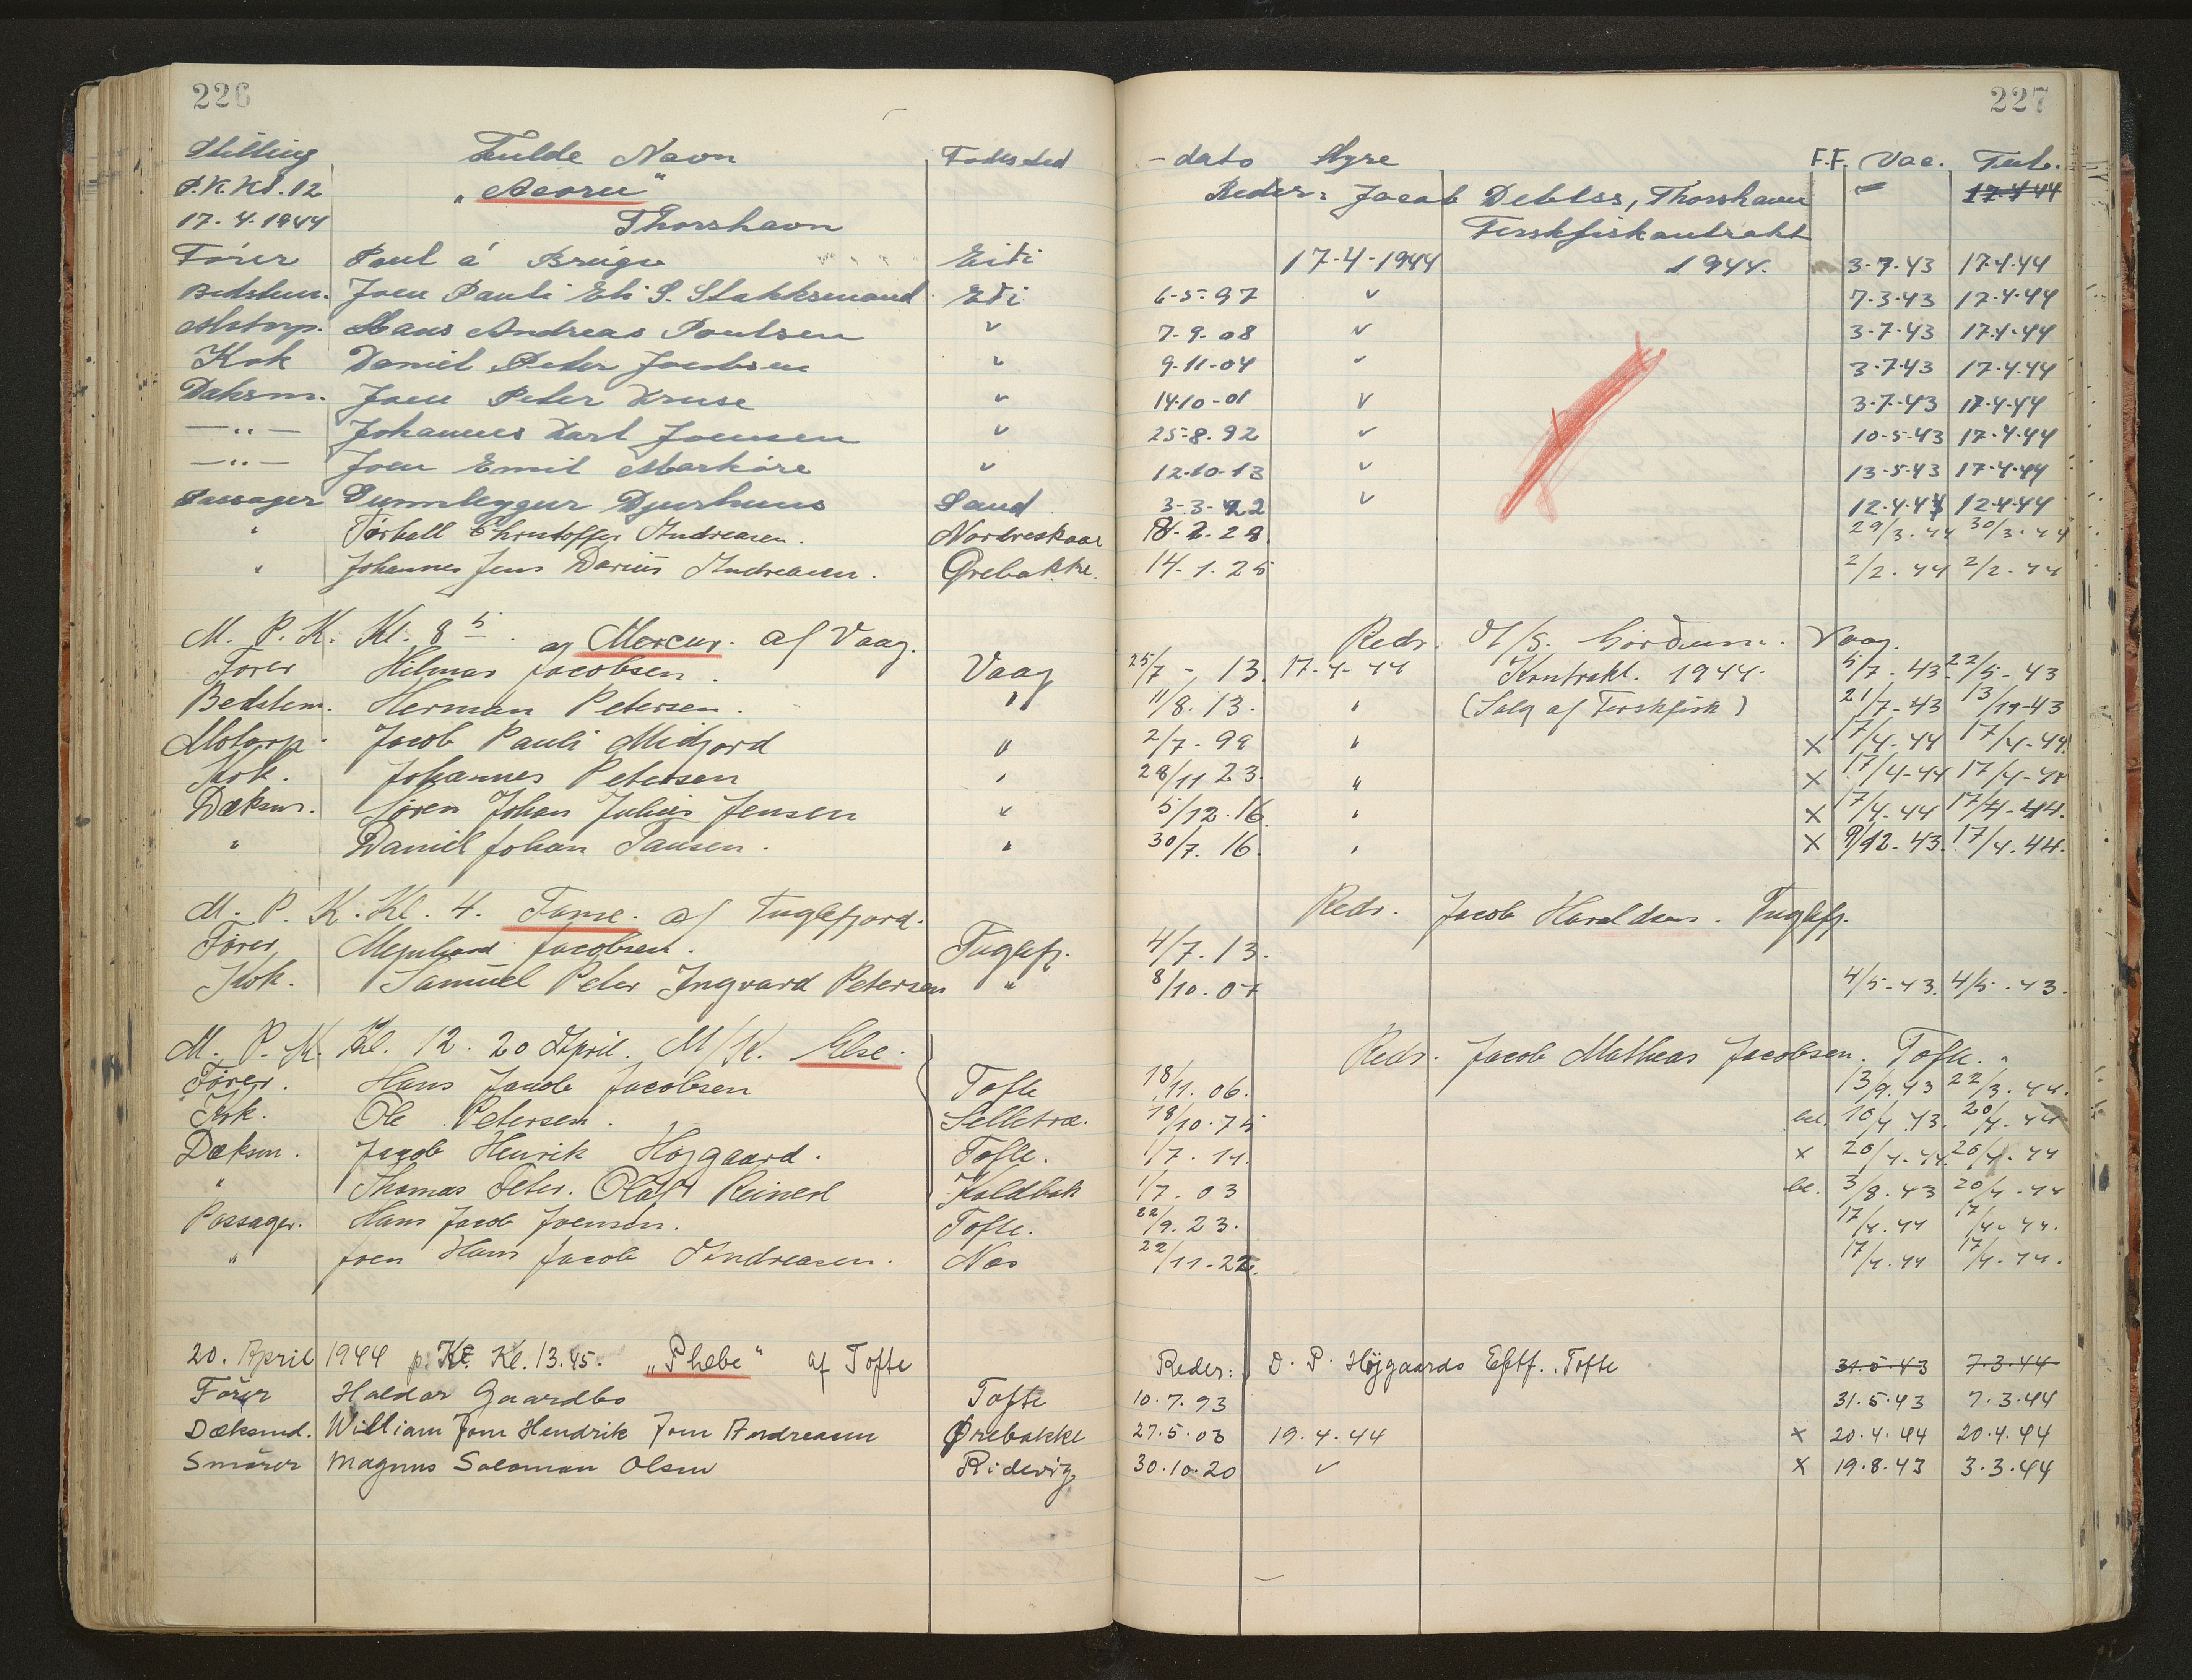 226
227
Stilling Fulde Navn Fødested - dato Hyre F.F. Vac. Tub.
P.K. Kl. 12 „Acorn“ Reder: Jacob Thorshavn 17.4.44
17-4-1944 Thorshavn Ferskfiskkontrakt
Fører Poul á Brúgv Eiði 17-4-1944 1944. 3-7-43 17.4.44
Bedstem. Joen Pauli Eli S. Stakksmand Eði 6-5-97 〃 7-3-43 17-4-44
Motorp. Hans Andreas Poulsen 〃 7-9-08 〃 3-7-43 17.4.44
Kok Daniel Peter Jacobsen 〃 9-11-04 〃 3-7-43 17.4.44
Daksm. Joen Peter Kruse 〃 14-10-01 〃 3-7-43 17-4-44
—〃— Johannes Karl Joensen 〃 25-8-92 〃 10-5-43 17-4-44
—〃— Joen Emil Markøre 〃 12-10-13 〃 13-5-43 17-4-44
Passager Gunnleygur Djurhuus Sand 3-3-22 〃 12-4-44 12-4-44
〃 Tórhall Christoffer Andreasen. Nordreskaale 18-2-28 29/3.44 30/3.44
〃 Johannes Jens Darius Andreasen. Ørebakke. 14-1.25 2/2.44 2/2-44
M. P. K. Kl. 8 5 Mercur. af Vaag. Redr. A/S. Vaag.
Fører Hilmar Jacobsen. Vaag 25/7 - 13. 17-4-44 Kontrakt. 1944. 5/7-43 22/5-43
Bedstem. Herman Petersen. 〃 11/8.13. 〃 (Salg af Ferskfisk) 21/7-43 13/10-43
Motorp. Jacob Pauli Midjord 〃 2/7-99 〃 x 17/4-44 17/4-44
Kok. Johannes Petersen 〃 28/11 23. 〃 x 17/4-44 17/4-44
Dæksm. Søren Johan Julius Jensen 〃 5/12.16. 〃 x 17/4.44 17/4-44.
〃 Daniel Johan Pausen. 〃 30/7.16. 〃 x 9/12-43. 17/4.44.
M. P. K. Kl. 4. af Fuglefjord. Redr. Jacob Haraldsen. Fuglefj.
Fører Meinhard Jacobsen. Fuglefj. 4/7.13.
Kok. Samuel Peter Ingvard Petersen 〃 8/10.07 4/5-43. 4/5.43.
M. P. K. Kl. 12. 20 April. M/K. Else. Redr. Jacob Mathias Jacobsen. Tofte.
Fører. Hans Jacob Jacobsen Tofte 18/11.06. 13/9.43 22/3.44.
Kok. Ole Petersen. Selletræ. 18/10.75 bel. 10/4.43. 20/4.44
Dæksm. Jacob Henrik Højgaard. Tofte. 1/7.14. x 20/4-44. 20/4.44
〃 Thomas Peter Olaf Reinert Koldbak 1/7.03 be. 3/8.43 20/4.44
Passager. Hans Jacob Joensen. Tofte. 22/9.23. 17/4.44 17/4-44.
〃 Joen Hans Jacob Andreasen. Næs 22/11-22. 17/4.44 17/4-44.
20. April 1944 p. K. Kl. 13.45. „Phebe“ af Tofte Reder: D. P. Højgaards Eftf. Tofte 31.5.43 7.3.44
Fører Haldor Gaardbo Tofte 10.7.93 31.5.43 7.3.44
Dæksmd. William Jens Hendrik Jom Andreasen Ørebakke 27.5.03 19.4.44 x 20.4.44 20.4.44
Smører Magnus Salomon Olsen Ridevig 30.10.20 〃 x 19.8.43 3.3.44